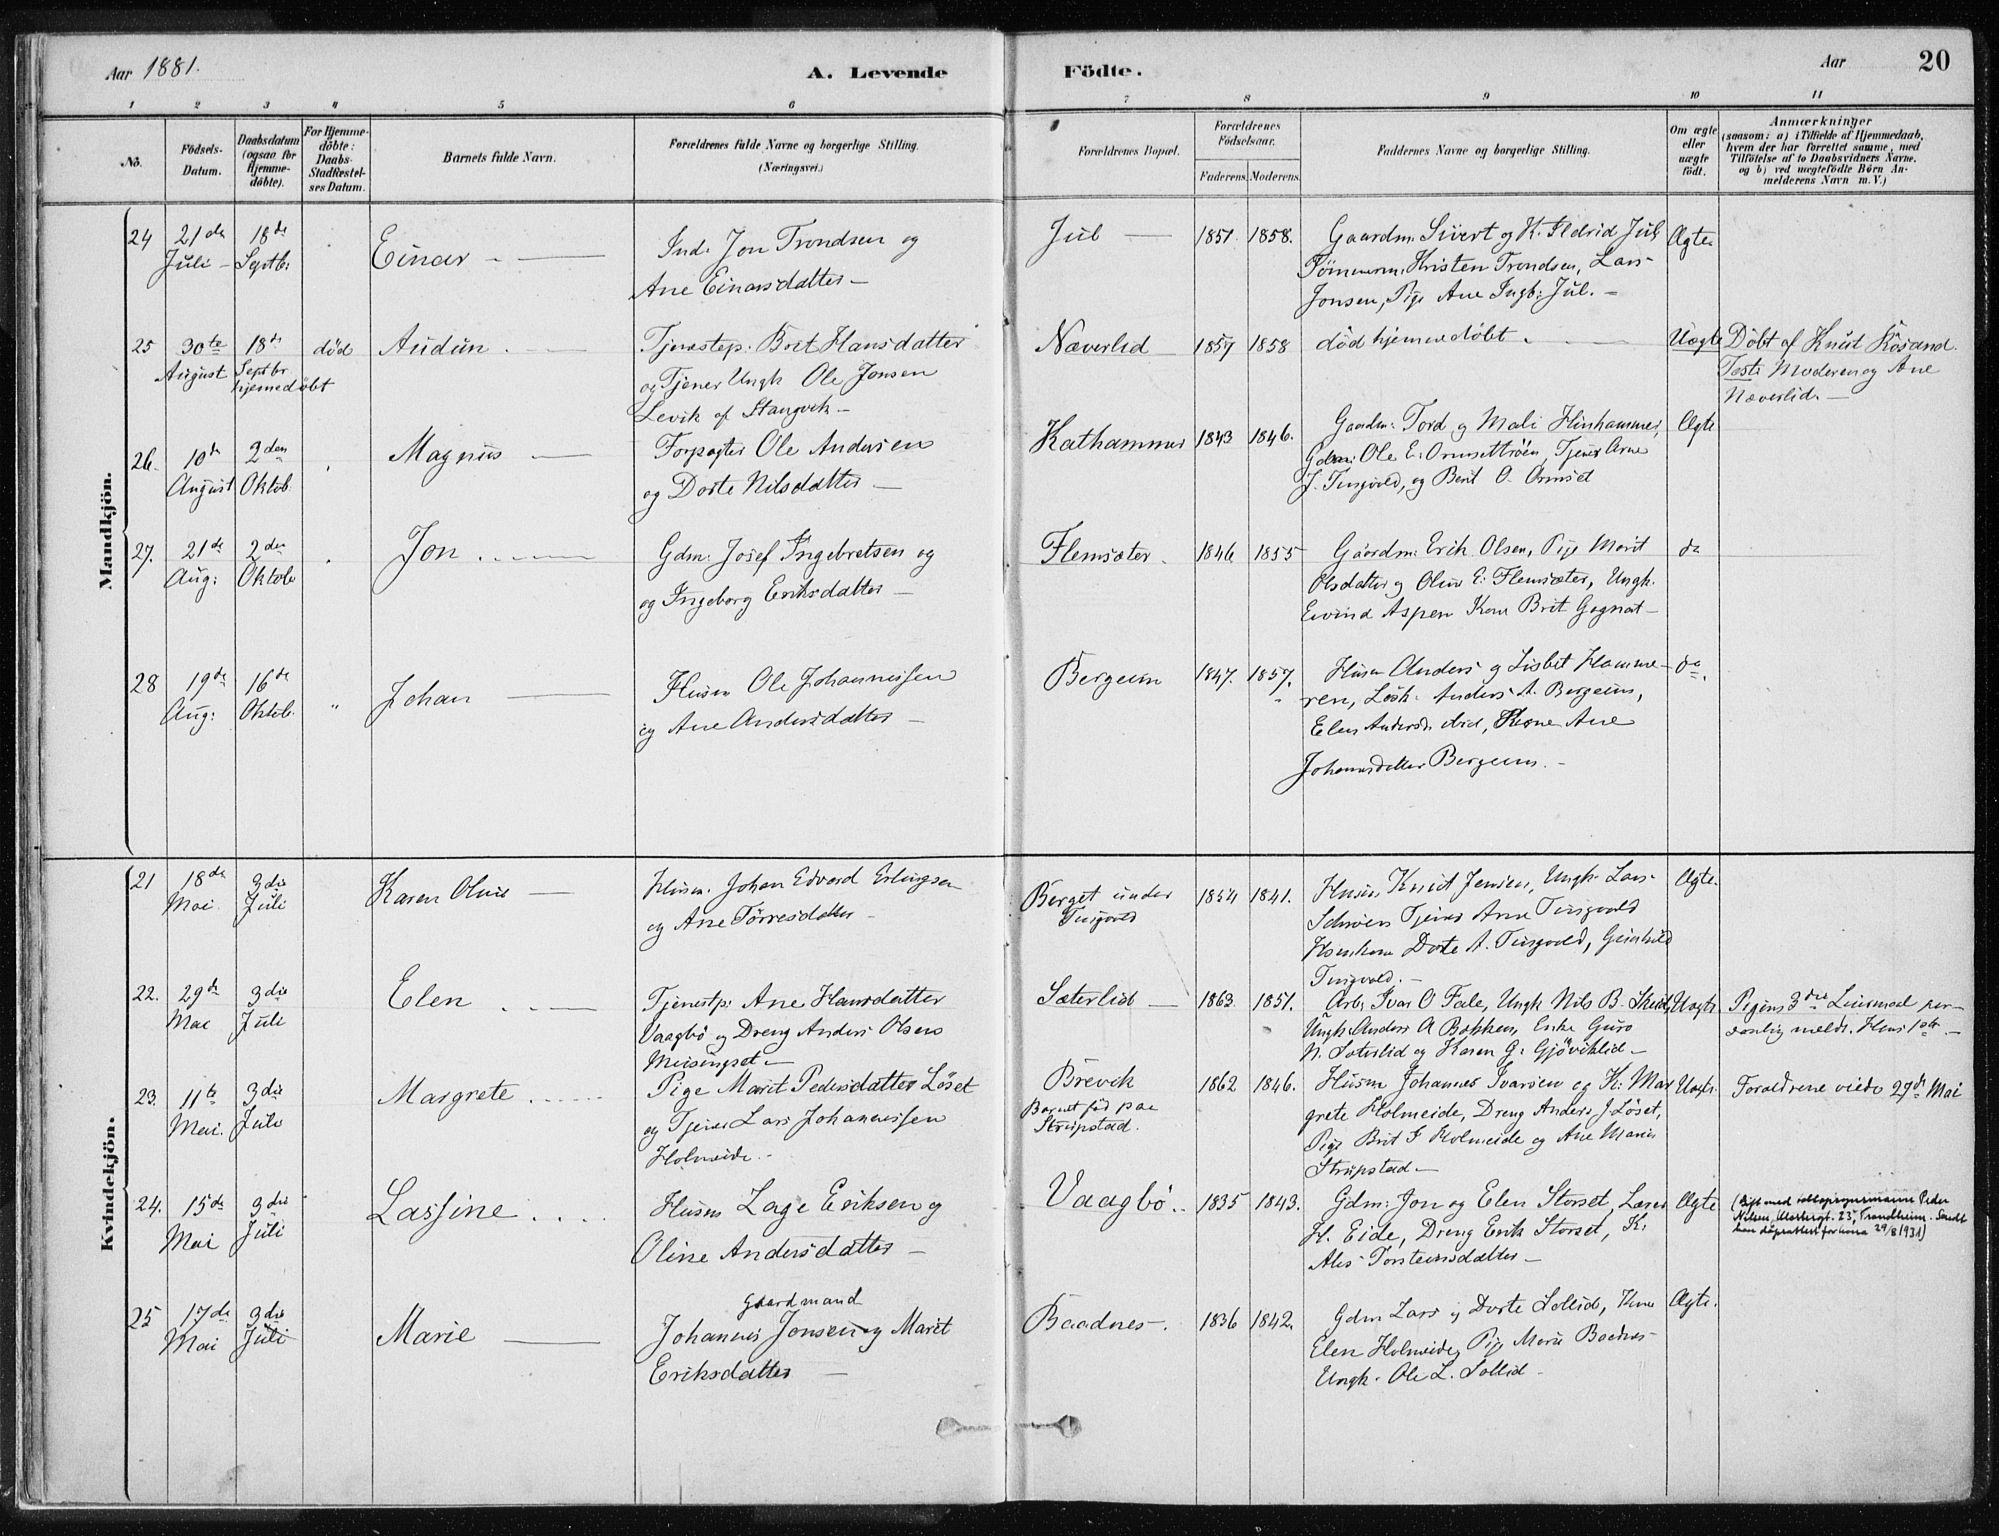 Aar 1881.
A. Levende Födte.
Aar 20
1 2 3 4 5 6 7 8 9 10 11
Nö.
Födsels-
Datum.
Daabsdatum
(ogsaa for
Hjemme-
döbte).
For Hjemme-
döbte:
Daabs-
Stadfæstel-
ses Datum.
Barnets fulde Navn.
Forældrenes fulde Navne og borgerlige Stilling.
(Næringsvei.)
Forældrenes Bopæl.
Forældrenes
Födselsaar.
Faderens. Moderens.
Faddernes Navne og borgerlige Stilling.
Om ægte
eller
uægte
födt.
Anmærkninger
(saasom: a) i Tilfælde af Hjemmedaab,
hvem der har forrettet samme, med
Tilföielse af to Daabsvidners Navne.
og b) ved uægtefödte Börn An-
melderens Navn m.V.)
Mandkjön.
24
21de
Juli
18de
Septbr
Einar
Ind. Jon Trondsen og
Ane Einarsdatter
Jul
1851. 1858.
Gaardm. Sivert og K. Ildrid Jul
Tömmerm. Kristen Trondsen, Lars
Jonsen, Pige Ane Ingb. Jul.
Ægte
25
30te
August
18de
Septbr
hjemedöbt
död
Audun
Tjenestep. Brit Hansdatter
og Tjener Ungk Ole Jonsen
Levik af Stangvik
Næverlid
1857 1858
död hjemmedöbt
Uægte
Döbt af Knut Kösand.
Testi Moderen og Ane
Næverlid.
26.
10de
August
2den
Oktob.
Magnus
Forpagter Ole Andersen
og Dorte Nilsdatter
Kathammer
1843 1846.
Gaardm: Tord og Mali Hinhammer,
Gdm: Ole E. Ormsettröen, Tjener Arne
J. Tingvold, og Berit O. Ormset
Ægte
27.
21de
Aug:
2den
Oktob.
Jon
Gdm: Josef Ingebretsen og
og Ingeborg Eriksdatter
Flemsæter.
1846 1855
Gaardm: Erik Olsen, Pige Marit
Olsdatter og Oline E. Flemsæter, Ungk.
Eivind Aspen Kone Brit Gagnat
do
28
19de
Aug:
16de
Oktob.
"
Johan
Husm Ole Johannessen
og Ane Andersdatter
Bergeim
1847. 1857.
Husm Anders og Lisbet Hamme-
ren, Losk. Anders A. Bergeim,
Elen Andersd. ibid, Kone Ane
Johannesdatter Bergeim.
do.
Kvindekjön.
21
18de
Mai.
3die
Juli
Karen Oline
Husm. Johan Edvard Erlingsen
og Ane Törresdatter
Berget under
Tingvold
1854 1841.
Husm. Knut Jensen, Ungk. Lars
Tjener Arne Tingvold
Dorte A. Tingvold, Gunhild
Tingvold.
Ægte.
22.
29de
Mai
3die
Juli
Elen
Tjenestp. Ane Hansdatter
Vaagbö og Dreng Anders Olsen
Meisingset
Sæterlid
1863. 1851.
Arb: Ivar O Fale, Ungk Nils B.
Ungk. Anders A Bakken, Enke Guro
N. Sæterlid og Karen G. Gjöviklid
Uægte.
Pigens 3die Leiermaal per-
sonlig meldt. Hans 1ste.
23.
11te
Mai.
3die
Juli
Margrete
Pige Marit Pedersdatter Löset
og Tjener Lars Johannessen
Holmeide.
Brevik
Barnet föd paa
Strupstad.
1862 1846.
Husm Johannes Ivarsen og K: Mar
grete Holmeide, Dreng Anders J Löset,
Pige Brit I Holmeide og Ane Marie
Strupstad
Uægte.
Forældrene viede 29de Mai
24.
15de
Mai
3die
Juli
Lassine
Husm Lage Eriksen og
Oline Andersdatter
Vaagbö.
1835 1843.
Gdm: Jon og Elen Storset, Lærer
H. Eide, Dreng Erik Storset, K:
Ales Torsteinsdatter
Ægte
(Gift med Peder
Nilsen, 25, Trondheim. Sendt
dåpsattest for henne 29/8 1931)
25
17de
Mai
3die
Juli
Marie
Gaardmand
Johannes Jonsen og Marit
Eriksdatter
Baadnes
1836 1842.
Gdm Lars og Dorte Sollid, Kone
Elen Holmeide, Pige Marie Baadnes
Ungk. Ole L. Sollid
Ægte.